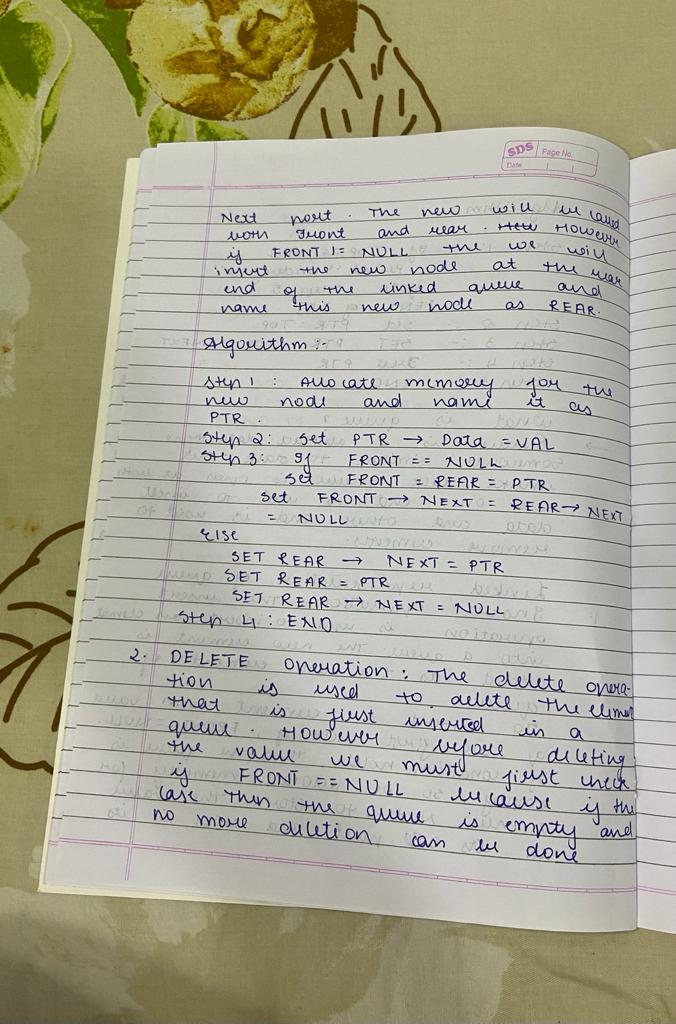 SDS Page No.
Date
Next part. The new will be called
both front and rear. However
if FRONT != NULL the we will
insert the new node at the rear
end of the linked queue and
name this new node as REAR.
Algorithm :-
Step 1 : Allocate memory for the
new node and name it as
PTR.
Step 2: Set PTR → Data = VAL
Step 3: If FRONT == NULL
Set FRONT = REAR = PTR
Set FRONT → NEXT = REAR → NEXT
= NULL
else
SET REAR → NEXT = PTR
SET REAR = PTR
SET REAR → NEXT = NULL
Step 4 : END
2. DELETE operation : The delete opera-
tion is used to delete the element
that is first inserted in a
queue. However before deleting
the value we must first check
if FRONT == NULL because if the
case then the queue is empty and
no more deletion can be done